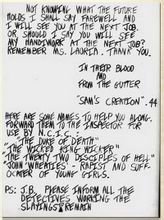 NOT KNOWING WHAT THE FUTURE
HOLDS I SHALL SAY FAREWELL AND
I WILL SEE YOU AT THE NEXT JOB.
OR SHOULD I SAY YOU WILL SEE
MY HANDIWORK AT THE NEXT JOB?
REMEMBER MS. LAURIA. THANK YOU.
IN THEIR BLOOD
AND
FROM THE GUTTER
"SAM'S CREATION" .44
HERE ARE SOME NAMES TO HELP YOU ALONG.
FORWARD THEM TO THE INSPECTOR FOR
USE BY N.C.I.C:
"THE DUKE OF DEATH"
"THE WICKED KING WICKER"
"THE TWENTY TWO DISCIPLES OF HELL"
"JOHN 'WHEATIES' - RAPIST AND SUFF-
OCATER OF YOUNG GIRLS.
PS: J.B. PLEASE INFORM ALL THE
DETECTIVES WORKING THE
SLAYINGS REMAIN